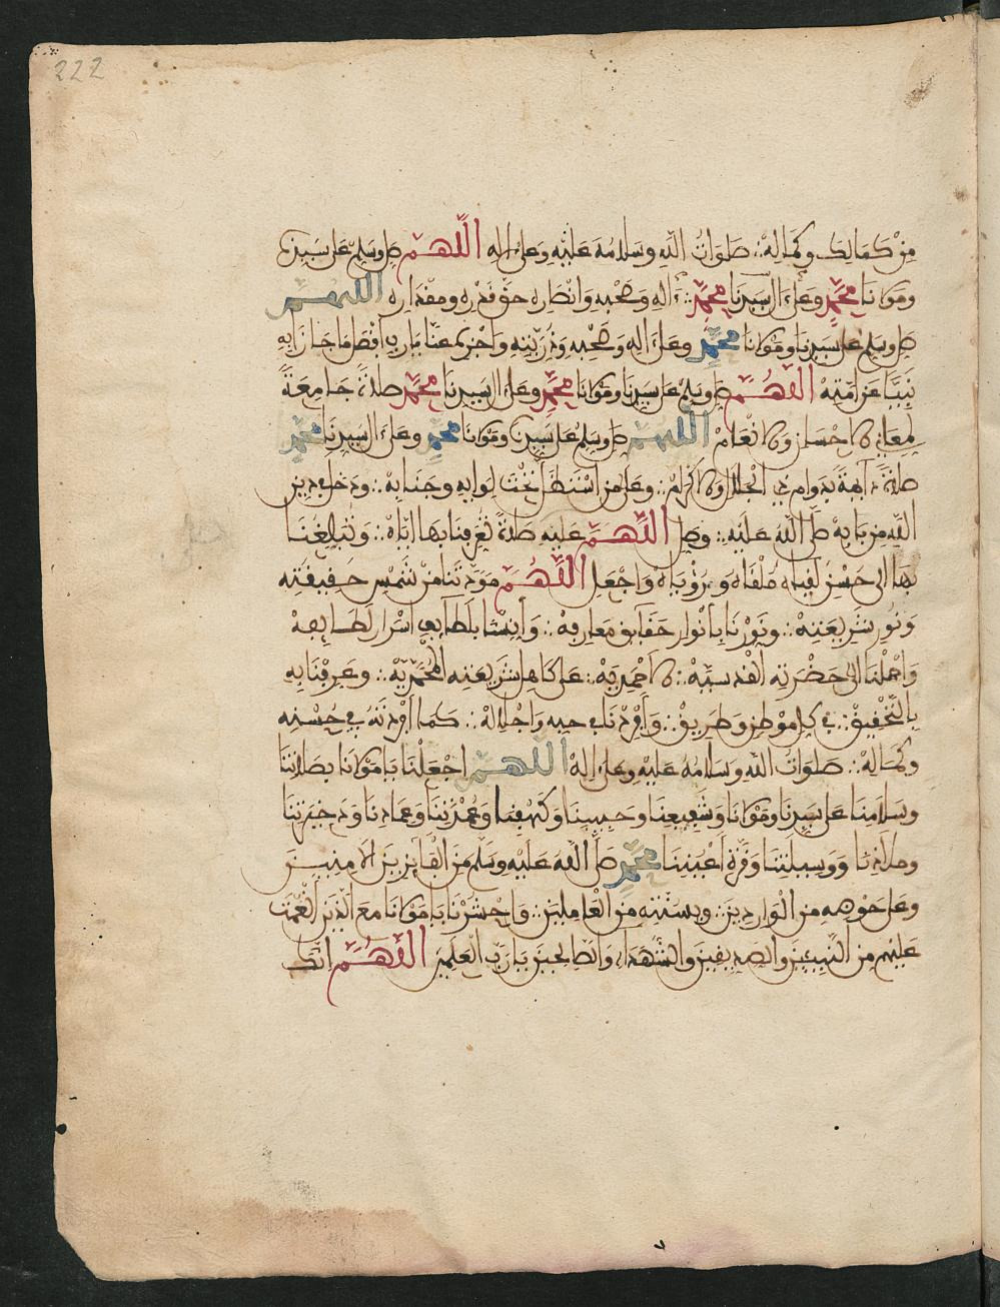 222
من كمالك وكماله ∴ صلوات الله وسلامه عليه وعلى اله اللهم صل وسلم على سيدنا
ومولانا محمد وعلى ال سيدنا محمد ∴ اله وصحبه وانصاره حق قدره ومقداره اللهم
صل وسلم على سيدنا ومولانا محمد وعلى اله وصحبه وذريته واجزه عنا يا رب افضل ما جازيت به
نبيا عن امته اللهم صل وسلم على سيدنا ومولانا محمد وعلى ال سيدنا محمد صلاة جامعة
لمعاني الاحسان والانعام اللهم صل وسلم على سيدنا ومولانا محمد وعلى ال سيدنا محمد
صلاة دائمة بدوام ذي الجلال والاكرام ∴ وعلى من استظل تحت لوائه وجنابه ∴ ودخل دين
الله من بابه صلى الله عليه ∴ وصل اللهم عليه صلاة تعرفنا بها اياه ∴ وتبلغنا
بها الى حسن لقياه وملقاه ورؤياه واجعل اللهم مودتنا من شمس حقيقته
ونور شريعته ∴ ونورنا بانوار حقائق معارفه ∴ وانسنا بلطائف اسرار لطائفه
واحملنا الى حضرته القدسية ∴ الاحمدية ∴ على كاهل شريعته المحمدية ∴ وعرفنا به
بالتحقيق ∴ في كل موطن وطريق ∴ وافردنا في حبه واجلاله ∴ كما افردته في حسنه
وكماله ∴ صلوات الله وسلامه عليه وعلى اله اللهم اجعلنا يا مولانا بصلاتنا
وسلامنا على سيدنا ومولانا وشفيعنا وحبيبنا وكهفنا وعمدتنا وعمادنا وذخيرتنا
وملاذنا ووسيلتنا وقرة اعيننا محمد صلى الله عليه وسلم من الفايزين الامنين
وعلى حوضه من الواردين ∴ وبسنته من العاملين ∴ واحشرنا يا مولانا مع الذين انعمت
عليهم من النبيئين والصديقين والشهداء والصالحين يا رب العلمين اللهم انك